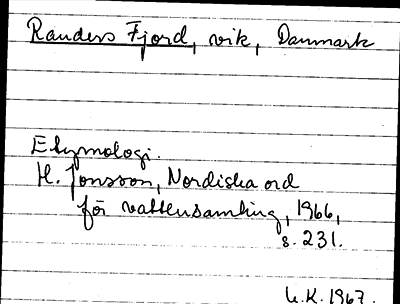 Randers Fjord, vik, Danmark
Etymologi.
H. Jonsson, Nordiska ord
för vattensamling, 1966,
s. 231.
U.K. 1967.